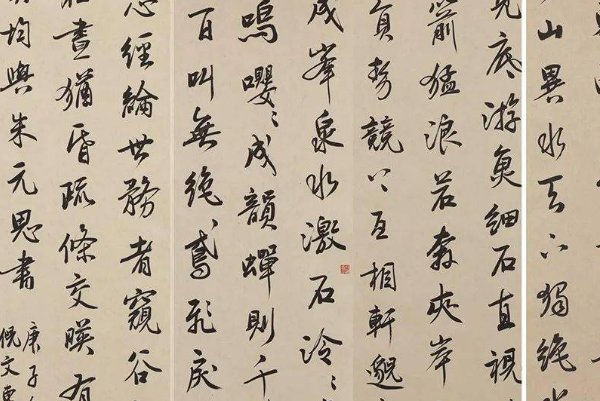 山異水天下獨絕水
見底游魚細石直視
箭猛浪若奔夾岸
負勢競上互相軒邈
成峯泉水激石泠々
鳴嚶々成韻蟬則千
百叫無絕鳶飛戾
心經綸世務者窺谷
在晝猶昏疏條交映有
均與朱元思書
庚子